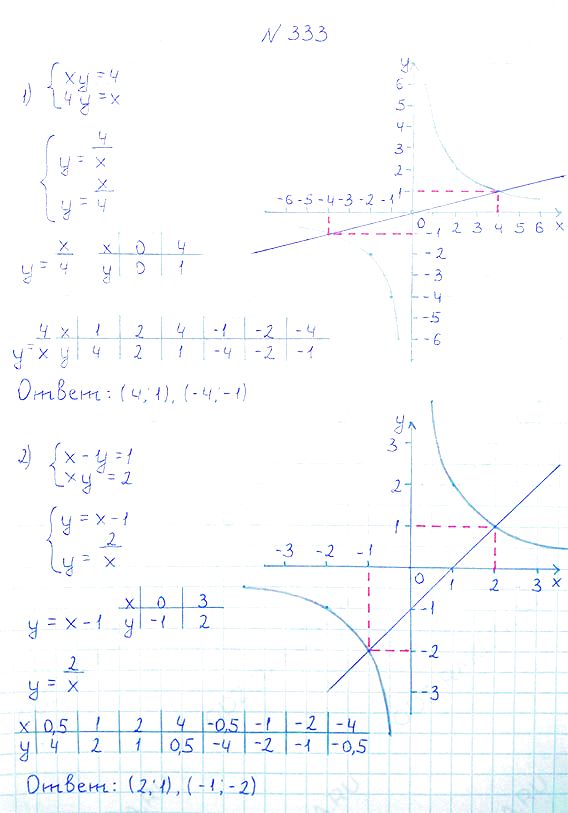 N 333
1) { xy = 4
4y = x
{ y = 4/x
y = x/4
y = x/4
x | 0 | 4
y | 0 | 1
y = 4/x
x | 1 | 2 | 4 | -1 | -2 | -4
y | 4 | 2 | 1 | -4 | -2 | -1
Ответ: (4; 1), (-4; -1)
y
6
5
4
3
2
1
-6 -5 -4 -3 -2 -1
0 2 3 4 5 6 x
-1
-2
-3
-4
-5
-6
2) { x - y = 1
xy = 2
{ y = x - 1
y = 2/x
y = x - 1
x | 0 | 3
y | -1 | 2
y = 2/x
x | 0,5 | 1 | 2 | 4 | -0,5 | -1 | -2 | -4
y | 4 | 2 | 1 | 0,5 | -4 | -2 | -1 | -0,5
Ответ: (2; 1), (-1; -2)
y
3
2
1
-3 -2 -1
0 1 2 3 x
-1
-2
-3